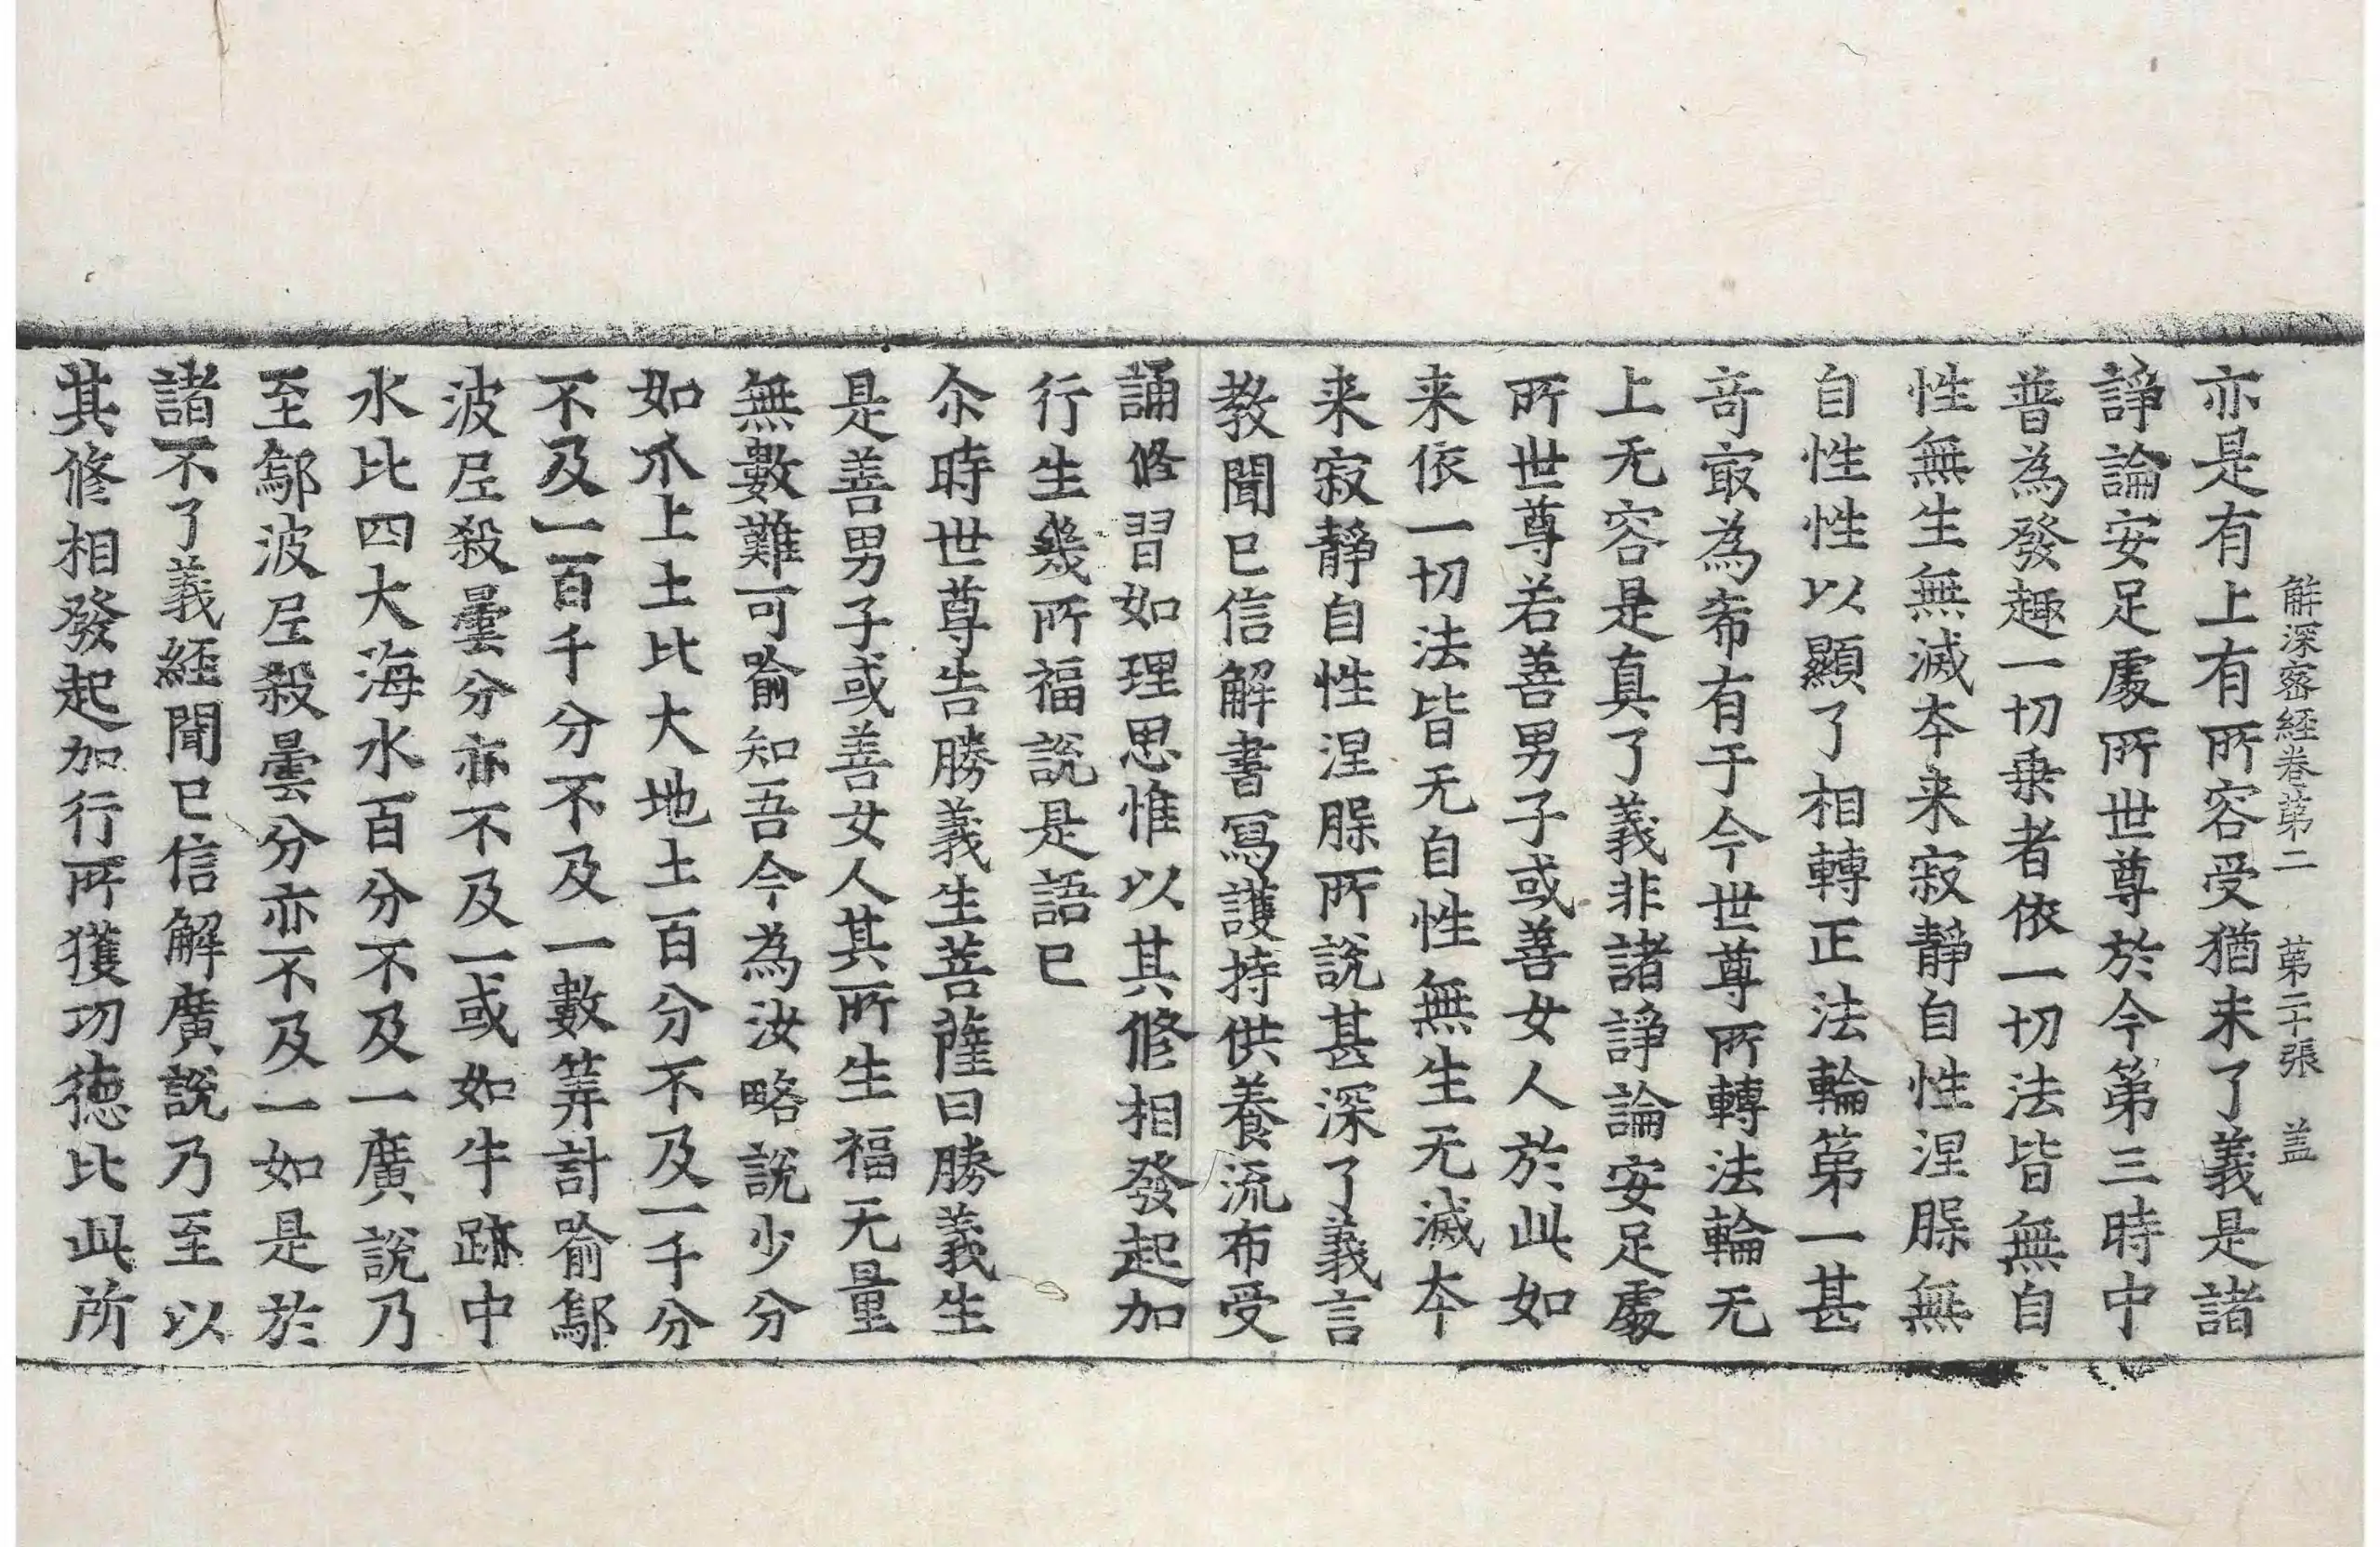 解深密経卷第二　第二十張　盖
亦是有上有所容受猶未了義是諸
諍論安足處所世尊於今第三時中
普為發趣一切乗者依一切法皆無自
性無生無滅夲来寂靜自性涅槃無
自性性以顯了相轉正法輪第一甚
竒㝡為希有于今世尊所轉法輪无
上无容是真了義非諸諍論安足處
所世尊若善男子或善女人於此如
来依一切法皆无自性無生无滅夲
来寂靜自性涅槃所説甚深了義言
教聞已信解書寫護持供養流布受
誦修習如理思惟以其修相發起加
行生幾所福説是語已
尒時世尊告勝義生菩薩曰勝義生
是善男子或善女人其所生福无量
無數難可喻知吾今為汝略説少分
如爪上土比大地土百分不及一千分
不及一百千分不及一數筭計喻鄔
波尼殺曇分亦不及一或如牛跡中
水比四大海水百分不及一廣説乃
至鄔波尼殺曇分亦不及一如是於
諸不了義經聞已信解廣説乃至以
其修相發起加行所獲功德比此所